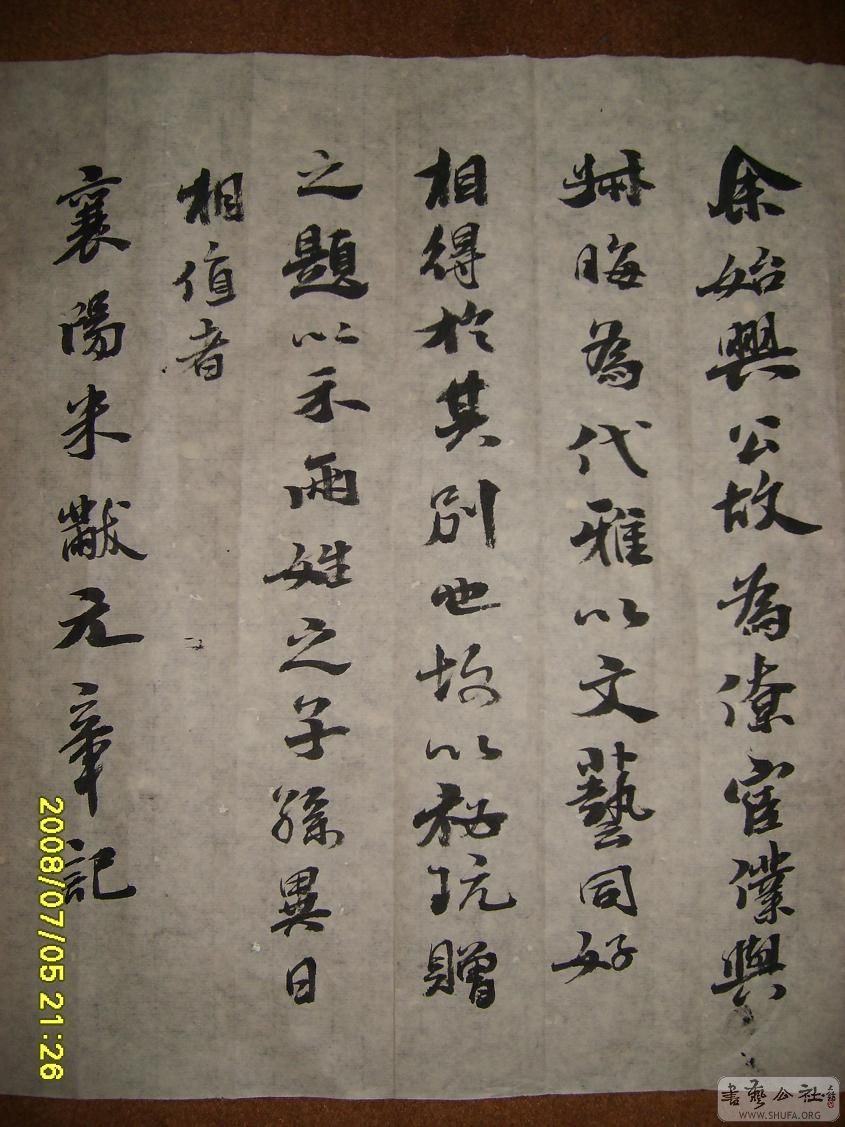 余始興公故為僚宦僕與
叔晦為代雅以文藝同好
相得於其別也故以秘玩贈
之題以示兩姓之子孫異日
相值者
襄陽米黻元章記
2008/07/05 21:26
書藝公社
WWW.SHUFA.ORG